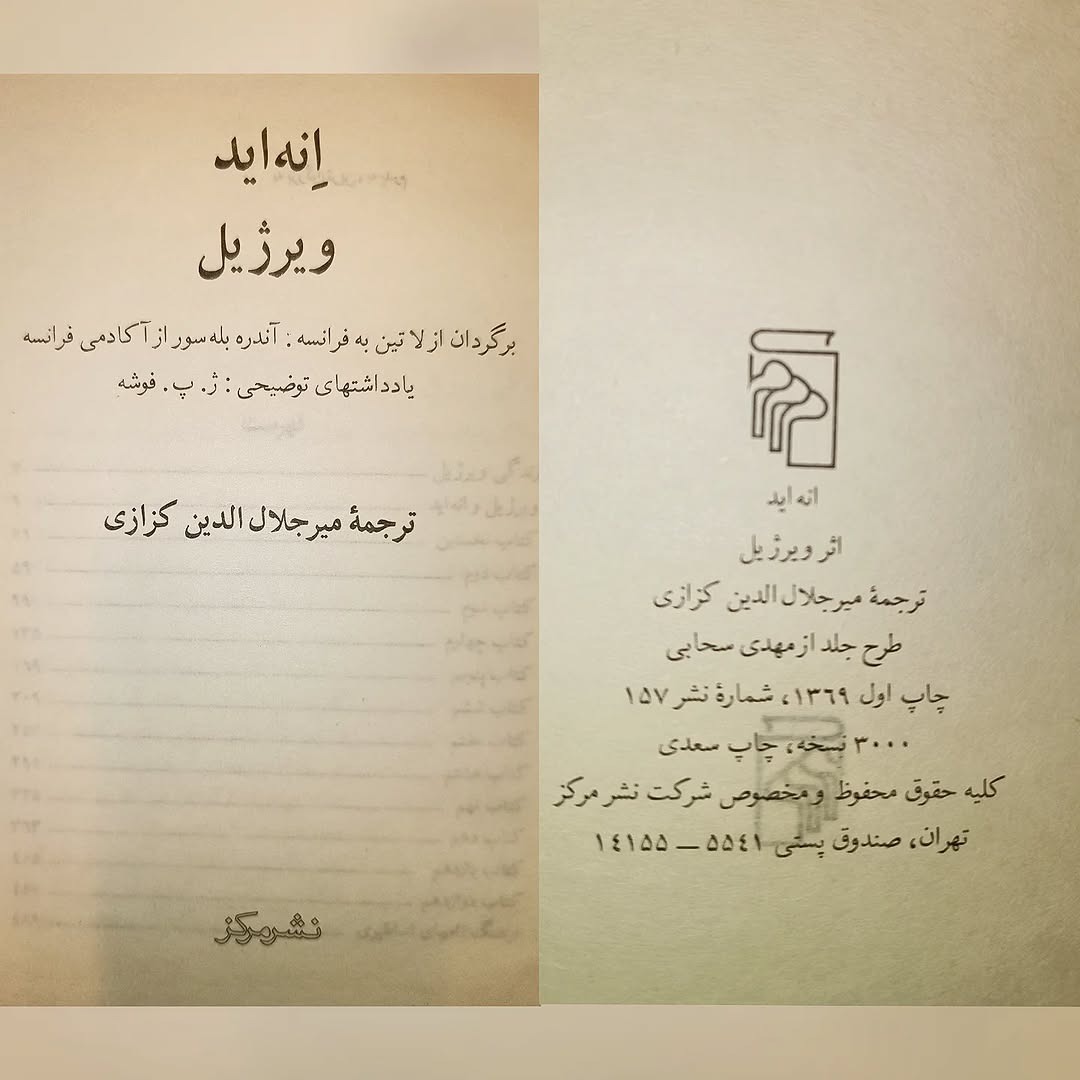 اِنه‌اید
ویرژیل
برگردان از لاتین به فرانسه : آندره بله‌سور از آکادمی فرانسه
یادداشتهای توضیحی : ژ. پ. فوشه
ترجمهٔ میرجلال الدین کزازی
نشرمرکز
انه اید
اثر ویرژیل
ترجمهٔ میرجلال الدین کزازی
طرح جلد از مهدی سحابی
چاپ اول ۱۳۶۹، شمارهٔ نشر ۱۵۷
۳۰۰۰ نسخه، چاپ سعدی
کلیه حقوق محفوظ و مخصوص شرکت نشر مرکز
تهران، صندوق پستی ۵۵۴۱ — ۱۴۱۵۵